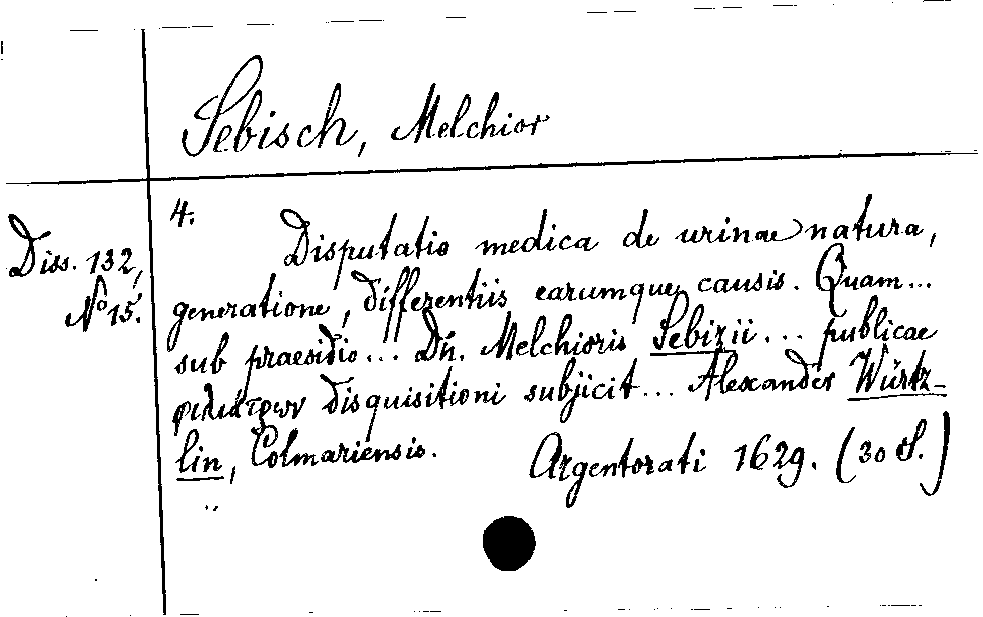 Sebisch, Melchior
Diss. 132,
No 15.
4.
Disputatio medica de urinae natura,
generatione, differentiis earumque causis. Quam...
sub praesidio... Dn. Melchioris Sebizii... publicae
φιλιάτρων disquisitioni subjicit... Alexander Würtz-
lin, Colmariensis.
Argentorati 1629. (30 S.)